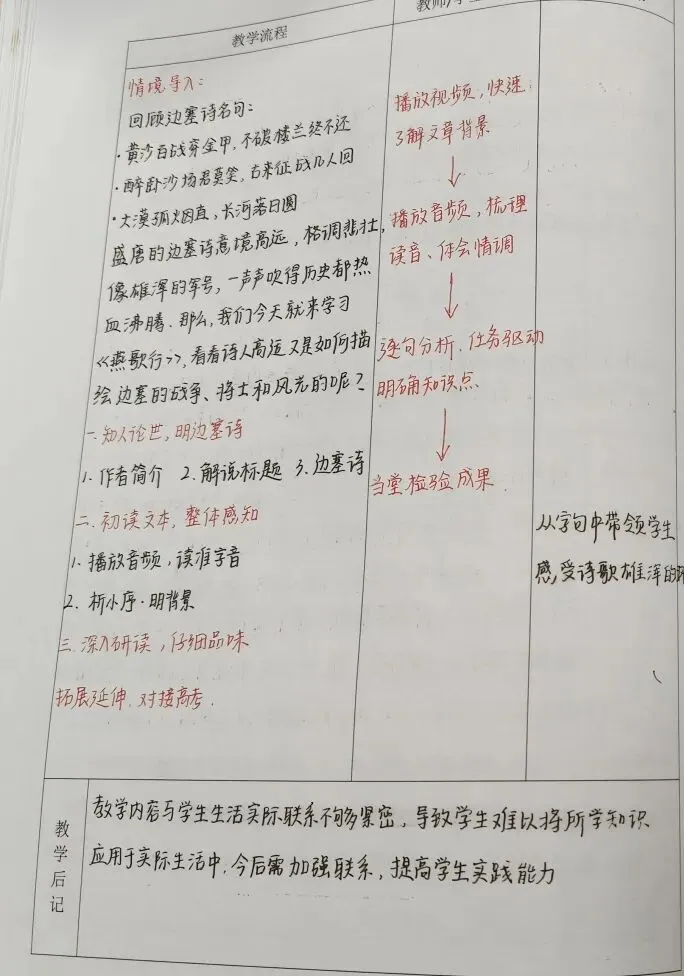 教学流程
情境导入：
回顾边塞诗名句：
·黄沙百战穿金甲，不破楼兰终不还
·醉卧沙场君莫笑，古来征战几人回
·大漠孤烟直，长河落日圆
盛唐的边塞诗意境高远，格调悲壮，
像雄浑的军号，一声声吹得历史都热
血沸腾、那么，我们今天就来学习
《燕歌行》，看看诗人高适又是如何描
绘边塞的战争、将士和风光的呢？
一.知人论世，明边塞诗
1.作者简介 2.解说标题 3.边塞诗
二.初读文本，整体感知
1.播放音频，读准字音
2.析小序·明背景
三.深入研读，仔细品味
拓展延伸.对接高考.
播放视频，快速
了解文章背景
↓
播放音频，梳理
读音、体会情调
↓
逐句分析.任务驱动
明确知识点.
↓
当堂检验成果.
从字句中带领学生
感受诗歌雄浑的
教学后记
教学内容与学生生活实际联系不够紧密，导致学生难以将所学知识
应用于实际生活中，今后需加强联系，提高学生实践能力